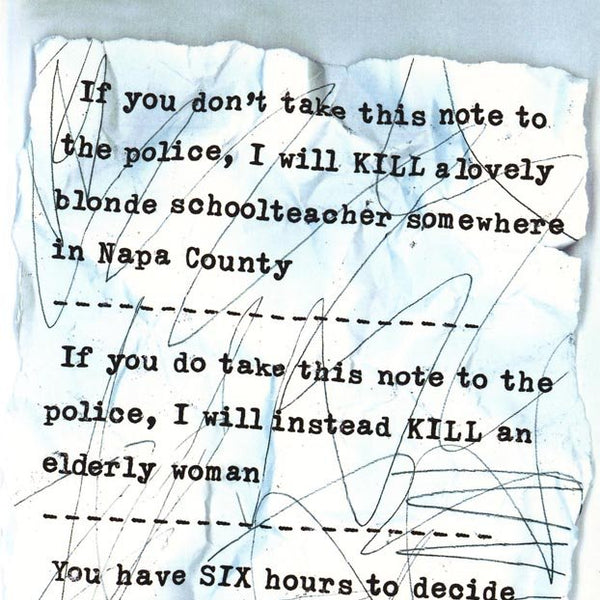 If you don't take this note to
the police, I will KILL a lovely
blonde schoolteacher somewhere
in Napa County
---------------------
If you do take this note to the
police, I will instead KILL an
elderly woman
----------------------
You have SIX hours to decide